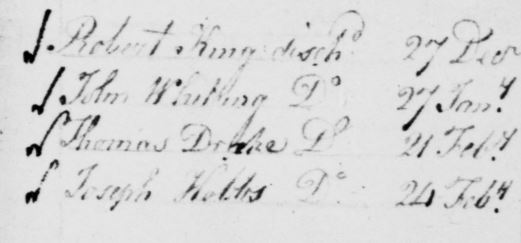 Robert King disch^d 27 Dec^r
John Whiting D^o 27 Jan^y
Thomas Drake D^o 21 Feb^y
Joseph Hobbs D^o 24 Feb^y